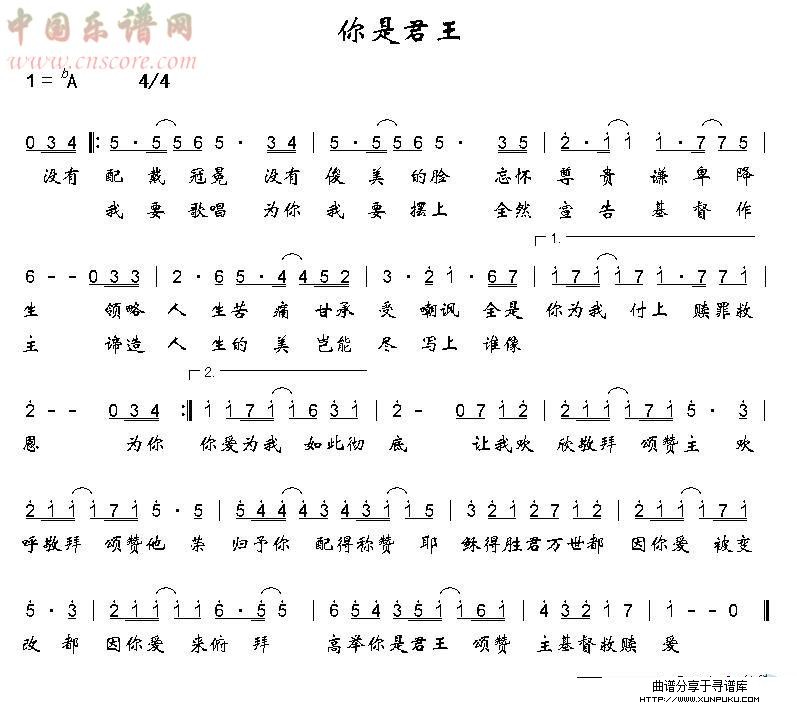 中国乐谱网
www.cnscore.com
你是君王
1 = ᵇA 4/4
0 3 4 ‖: 5 · 5 5 6 5 · 3 4 | 5 · 5 5 6 5 · 3 5 | 2̇ · 1̇ 1̇ 1̇ · 7 7 5 |
没有 配戴冠冕 没有俊美的脸 忘怀尊贵谦卑降
我要歌唱 为你我要摆上 全然宣告基督作
1.
6 - - 0 3 3 | 2 · 6 5 · 4 4 5 2 | 3 · 2̇ 1̇ · 6 7 | 1̇ 7 1̇ 1̇ 7 1̇ · 7 7 1̇ |
生 领略人生苦痛甘承受嘲讽全是你为我付上赎罪救
主 谛造人生的美岂能尽写上谁像
2.
2̇ - - 0 3 4 :‖ 1̇ 1̇ 7 1̇ 1̇ 6 3̇ 1̇ | 2̇ - 0 7 1̇ 2̇ | 2̇ 1̇ 1̇ 1̇ 7 1̇ 5 · 3̇ |
恩 为你 你爱为我如此彻底 让我欢欣敬拜颂赞主欢
2̇ 1̇ 1̇ 1̇ 7 1̇ 5 · 5 | 5̇ 4̇ 4̇ 4̇ 3̇ 4̇ 3̇ 1̇ 1̇ 5 | 3̇ 2̇ 1̇ 2̇ 7 1̇ 2̇ | 2̇ 1̇ 1̇ 1̇ 7 1̇
呼敬拜颂赞他荣归予你配得称赞耶稣得胜君万世都因你爱被变
5 · 3̇ | 2̇ 1̇ 1̇ 1̇ 1̇ 6 · 5 5 | 6 5 4 3̇ 5 1̇ 1̇ 6 1̇ | 4̇ 3̇ 2̇ 1̇ 7 | 1̇ - - 0 ‖
改都因你爱来俯拜 高举你是君王颂赞主基督救赎爱
曲谱分享于寻谱库
HTTP://WWW.XUNPUKU.COM